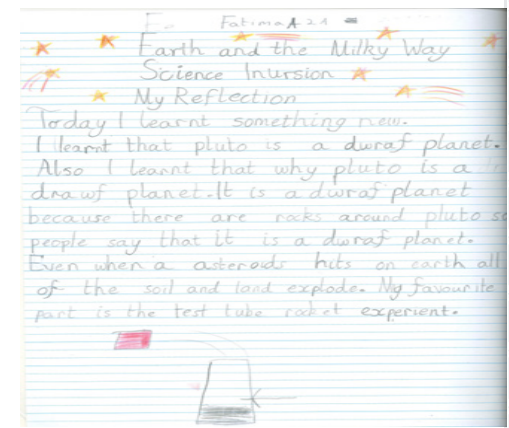 Fatima A 21
Earth and the Milky Way
Science Inursion
My Reflection
Today I learnt something new.
I learnt that pluto is a dwraf planet.
Also I learnt that why pluto is a
drawf planet. It is a dwraf planet
because there are rocks around pluto so
people say that it is a dwraf planet.
Even when a asteroids hits on earth all
of the soil and land explode. My favourite
part is the test tube rocket experient.